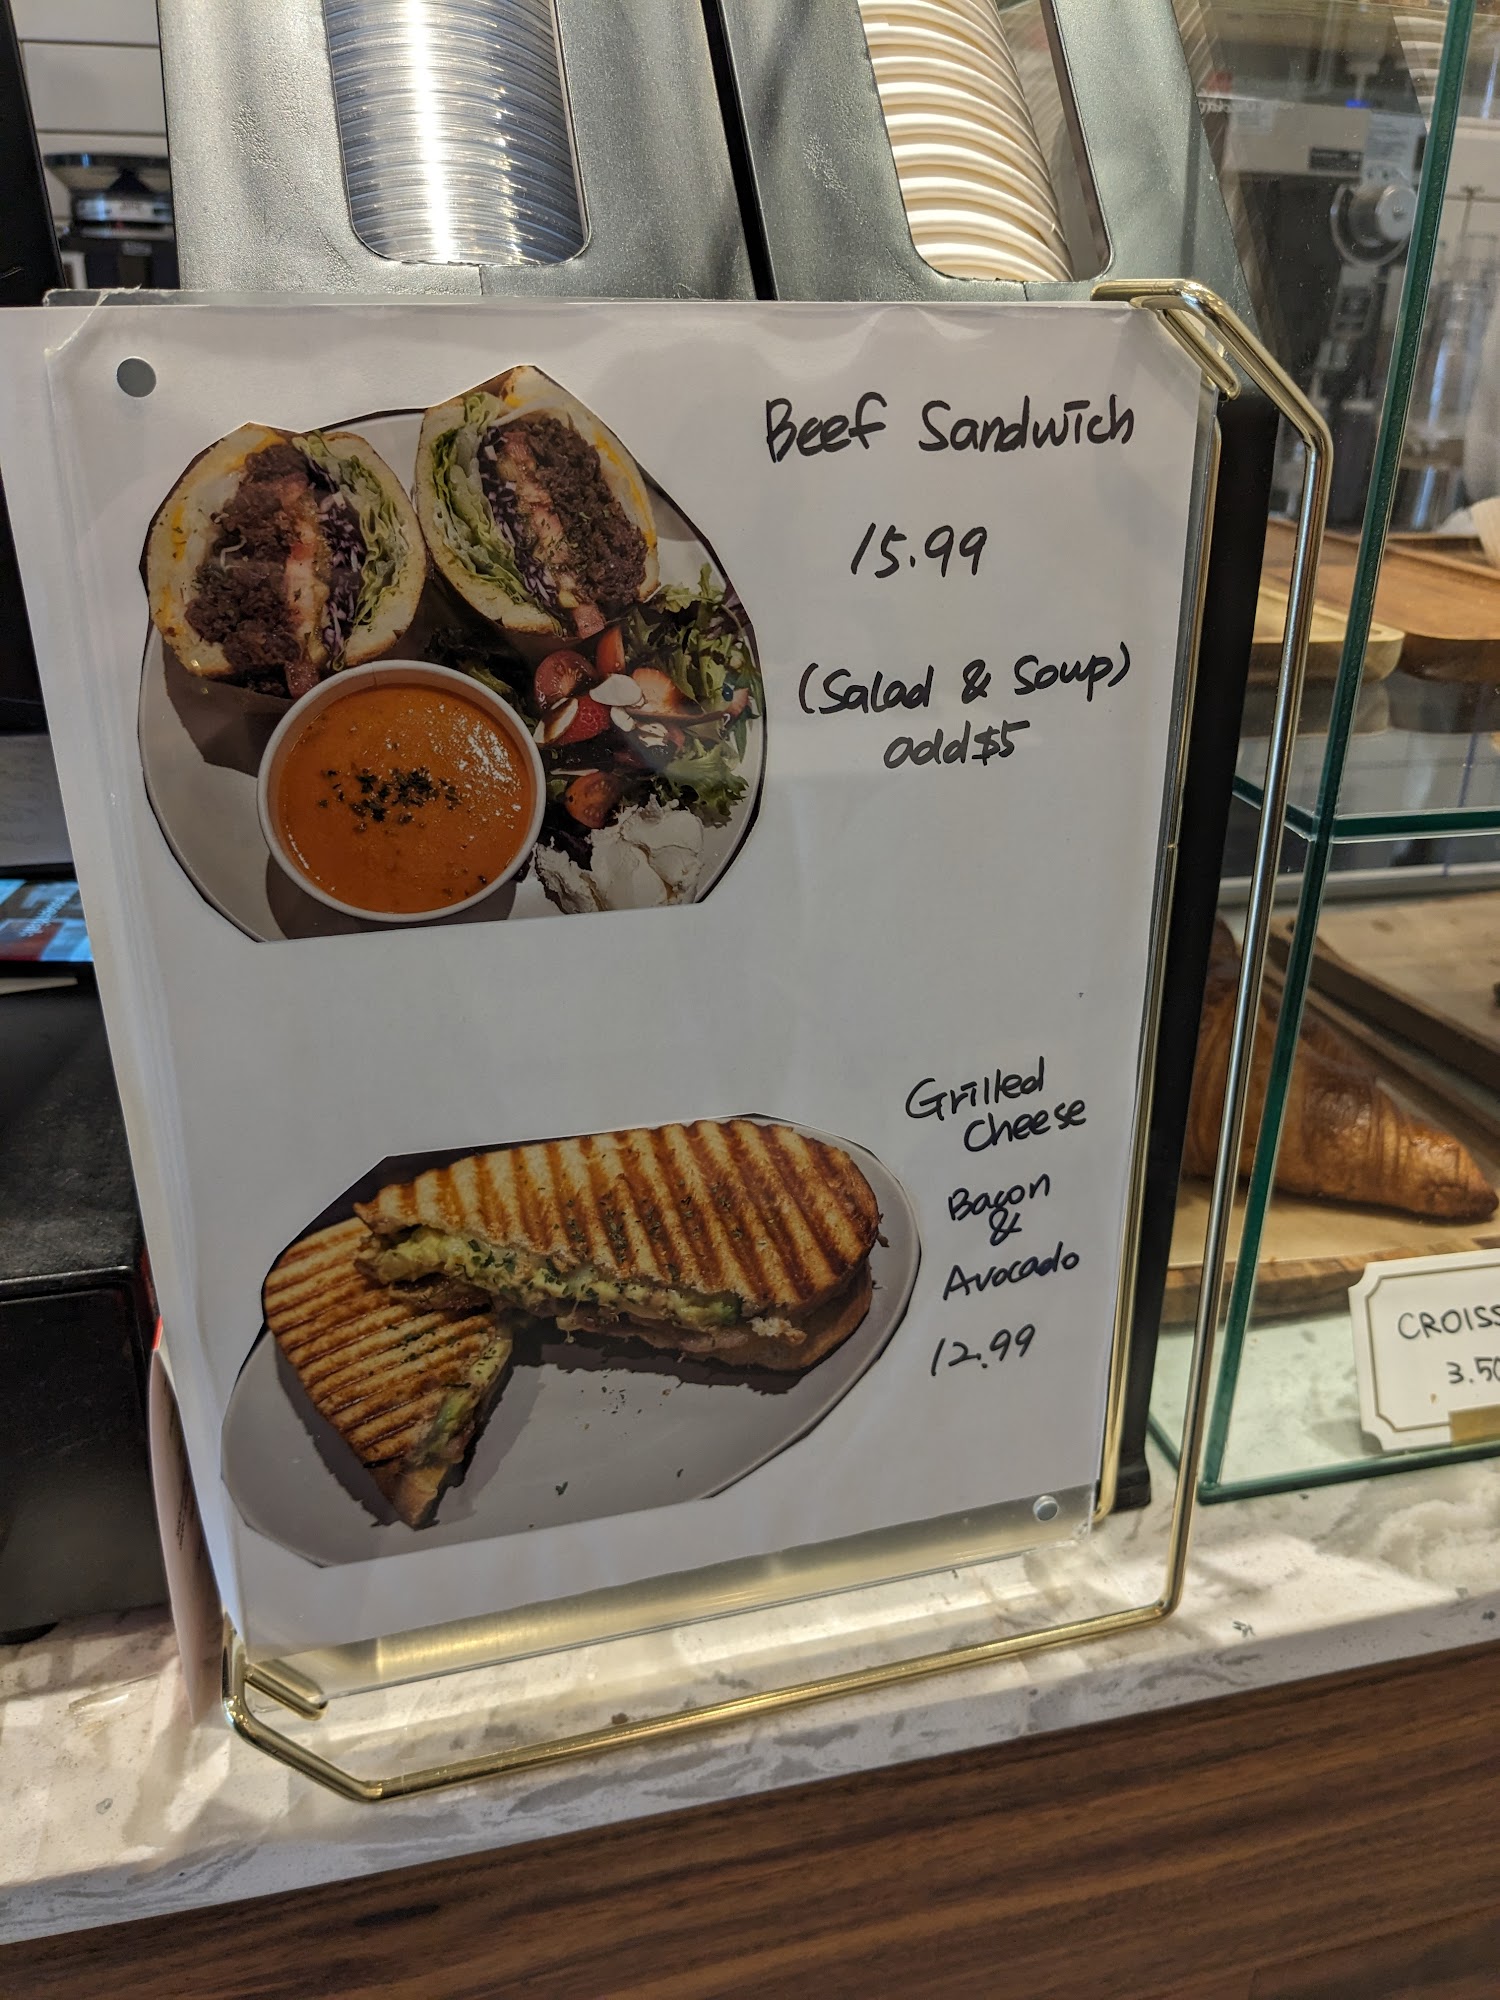 Beef Sandwich
15.99
(Salad & Soup)
add $5
Grilled
Cheese
Bacon
&
Avocado
12.99
CROISS
3.50